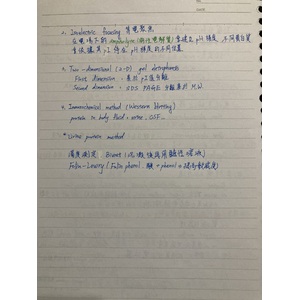 2. Isoelectric focusing 等電聚焦
在電場下的 Ampholyte (兩性電解質) 會建立 pH 梯度,不同蛋白質
會依據其 pI 停在 pH 梯度的不同位置
3. Two-dimensional (2-D) gel electrophoresis
First dimension : 基於 pI 值分離
Second dimension : SDS PAGE 分離基於 M.W.
4. Immunochemical method (Western blotting)
protein in body fluid : urine, CSF.
* Urine protein method
濁度測定 Biuret
Folin-Lowry (Folin phenol 酸 + phenol → 提高敏感度)